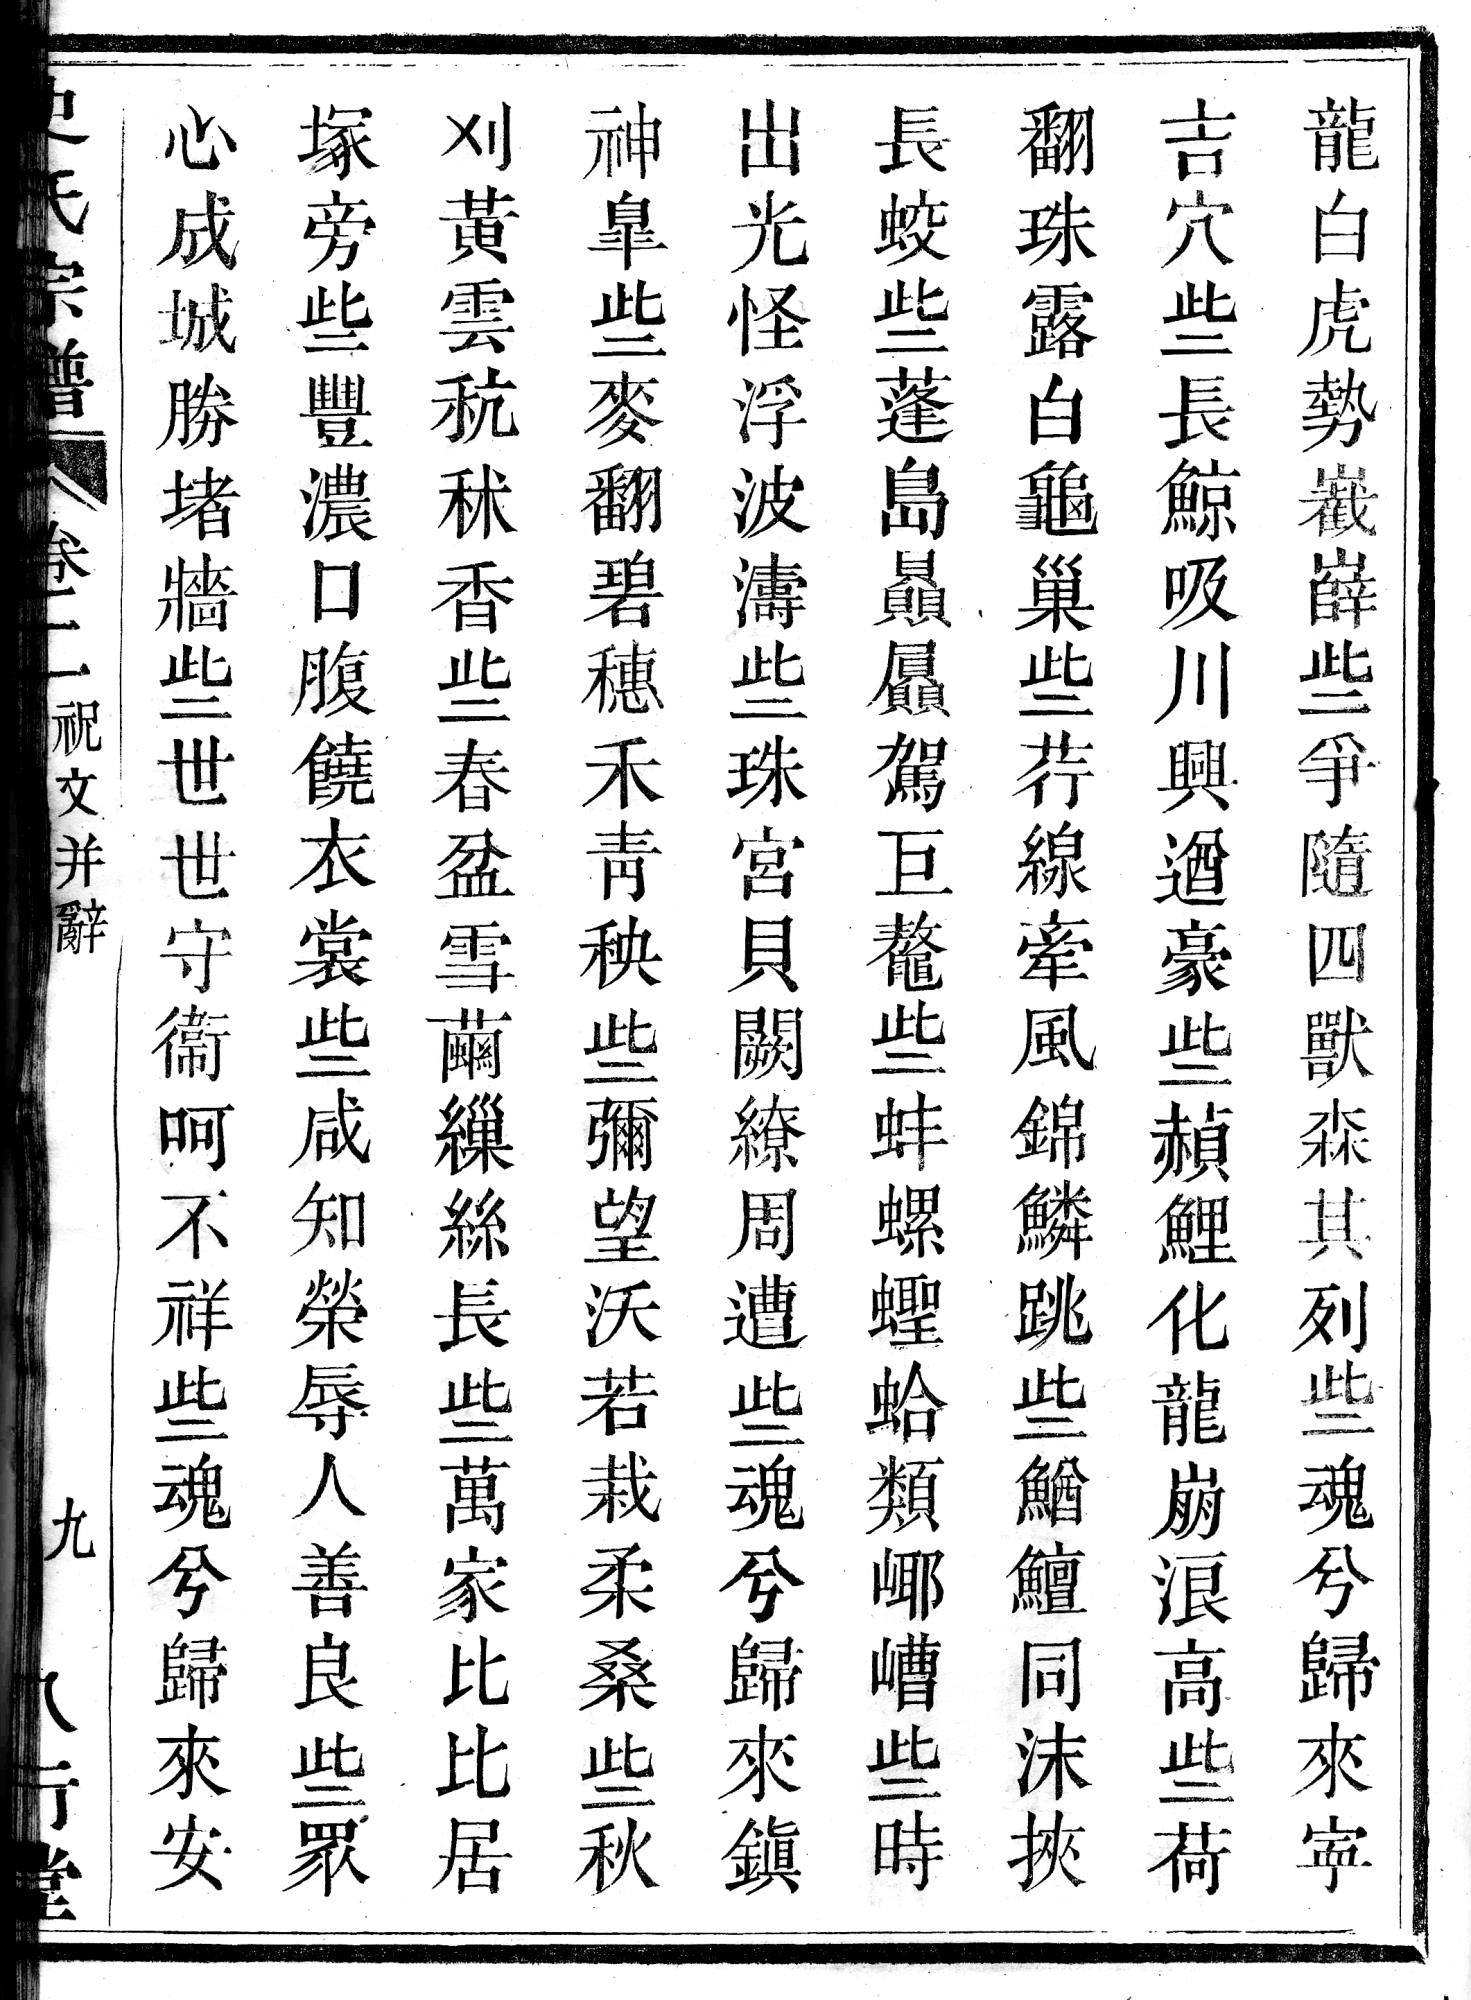 龍白虎勢嶻嶭些爭隨四獸森其列些魂兮歸來寜
吉穴些長鯨吸川興遒豪些赬鯉化龍崩浪高些荷
翻珠露白龜巢些荇線牽風錦鱗跳些鰌鱣同沫挾
長蛟些蓬島贔屭駕巨鼇些蚌螺蟶蛤類㟴嶆些時
出光怪浮波濤些珠宮貝闕繚周遭些魂兮歸來鎭
神臯些麥翻碧穗禾靑秧些彌望沃若栽柔桑些秋
刈黃雲秔秫香些春盆雪繭繅絲長些萬家比比居
塚旁些豐濃口腹饒衣裳些咸知榮辱人善良些眾
心成城勝堵牆些世世守衞呵不祥些魂兮歸來安
史氏宗譜 卷二 祝文并辭 九 八行堂